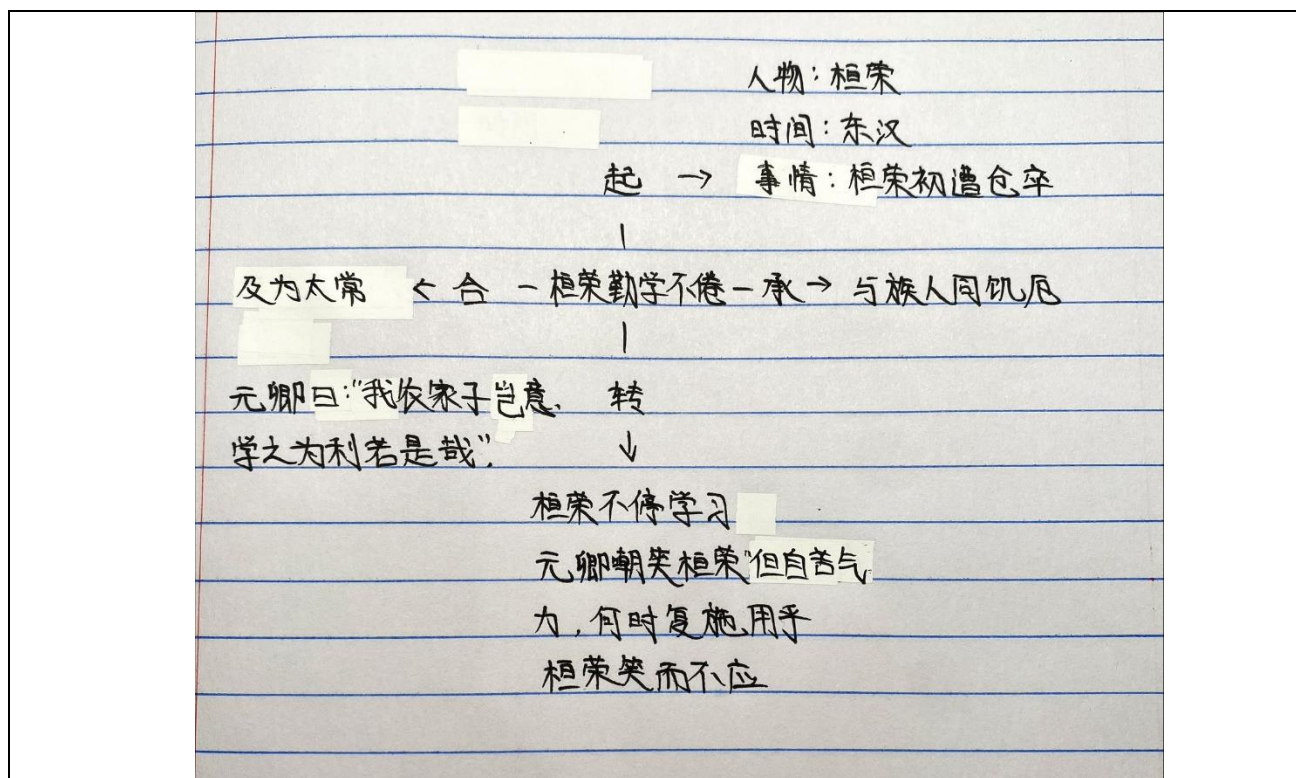 人物：桓荣
时间：东汉
起 → 事情：桓荣初遭仓卒
及为太常 ← 合 - 桓荣勤学不倦 - 承 → 与族人同饥厄
元卿曰：“我农家子岂意、 转
学之为利若是哉”.
↓
桓荣不停学习
元卿嘲笑桓荣“但自苦气
力，何时复施用乎
桓荣笑而不应